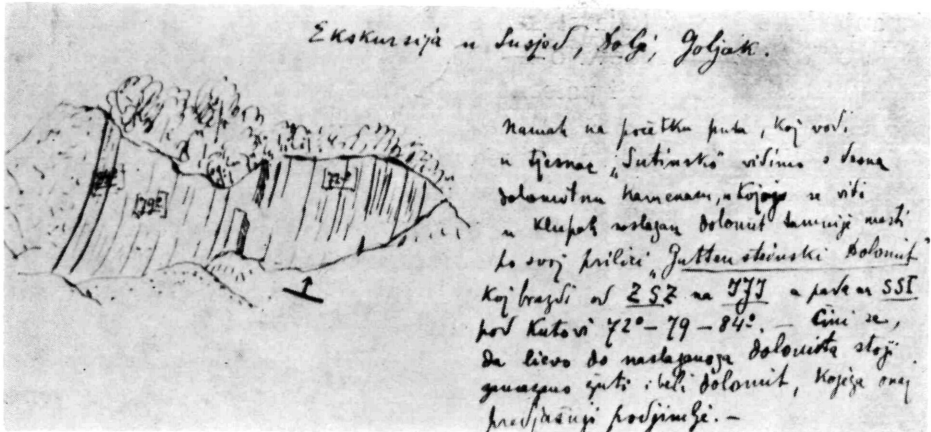 Ekskursija u Susjed, Dolje, Goljak.
[79°] [72°]
Namah na početku puta, koj vodi
u tjesnac „Sutinsko" vidimo s desna
dolomitnu kamenaru, u kojoj se vidi
u klupah naslagan dolomit tamnije masti
po svoj prilici „Guttensteinski Dolomit"
koj brazdi od ZSZ na IJI a pada na SSI
pod kutovi 72° – 79 – 84°. – Čini se,
da lievo do naslaganoga dolomita stoji
žuti i beli dolomit, kojega onaj
predjašnji podjimlje. –